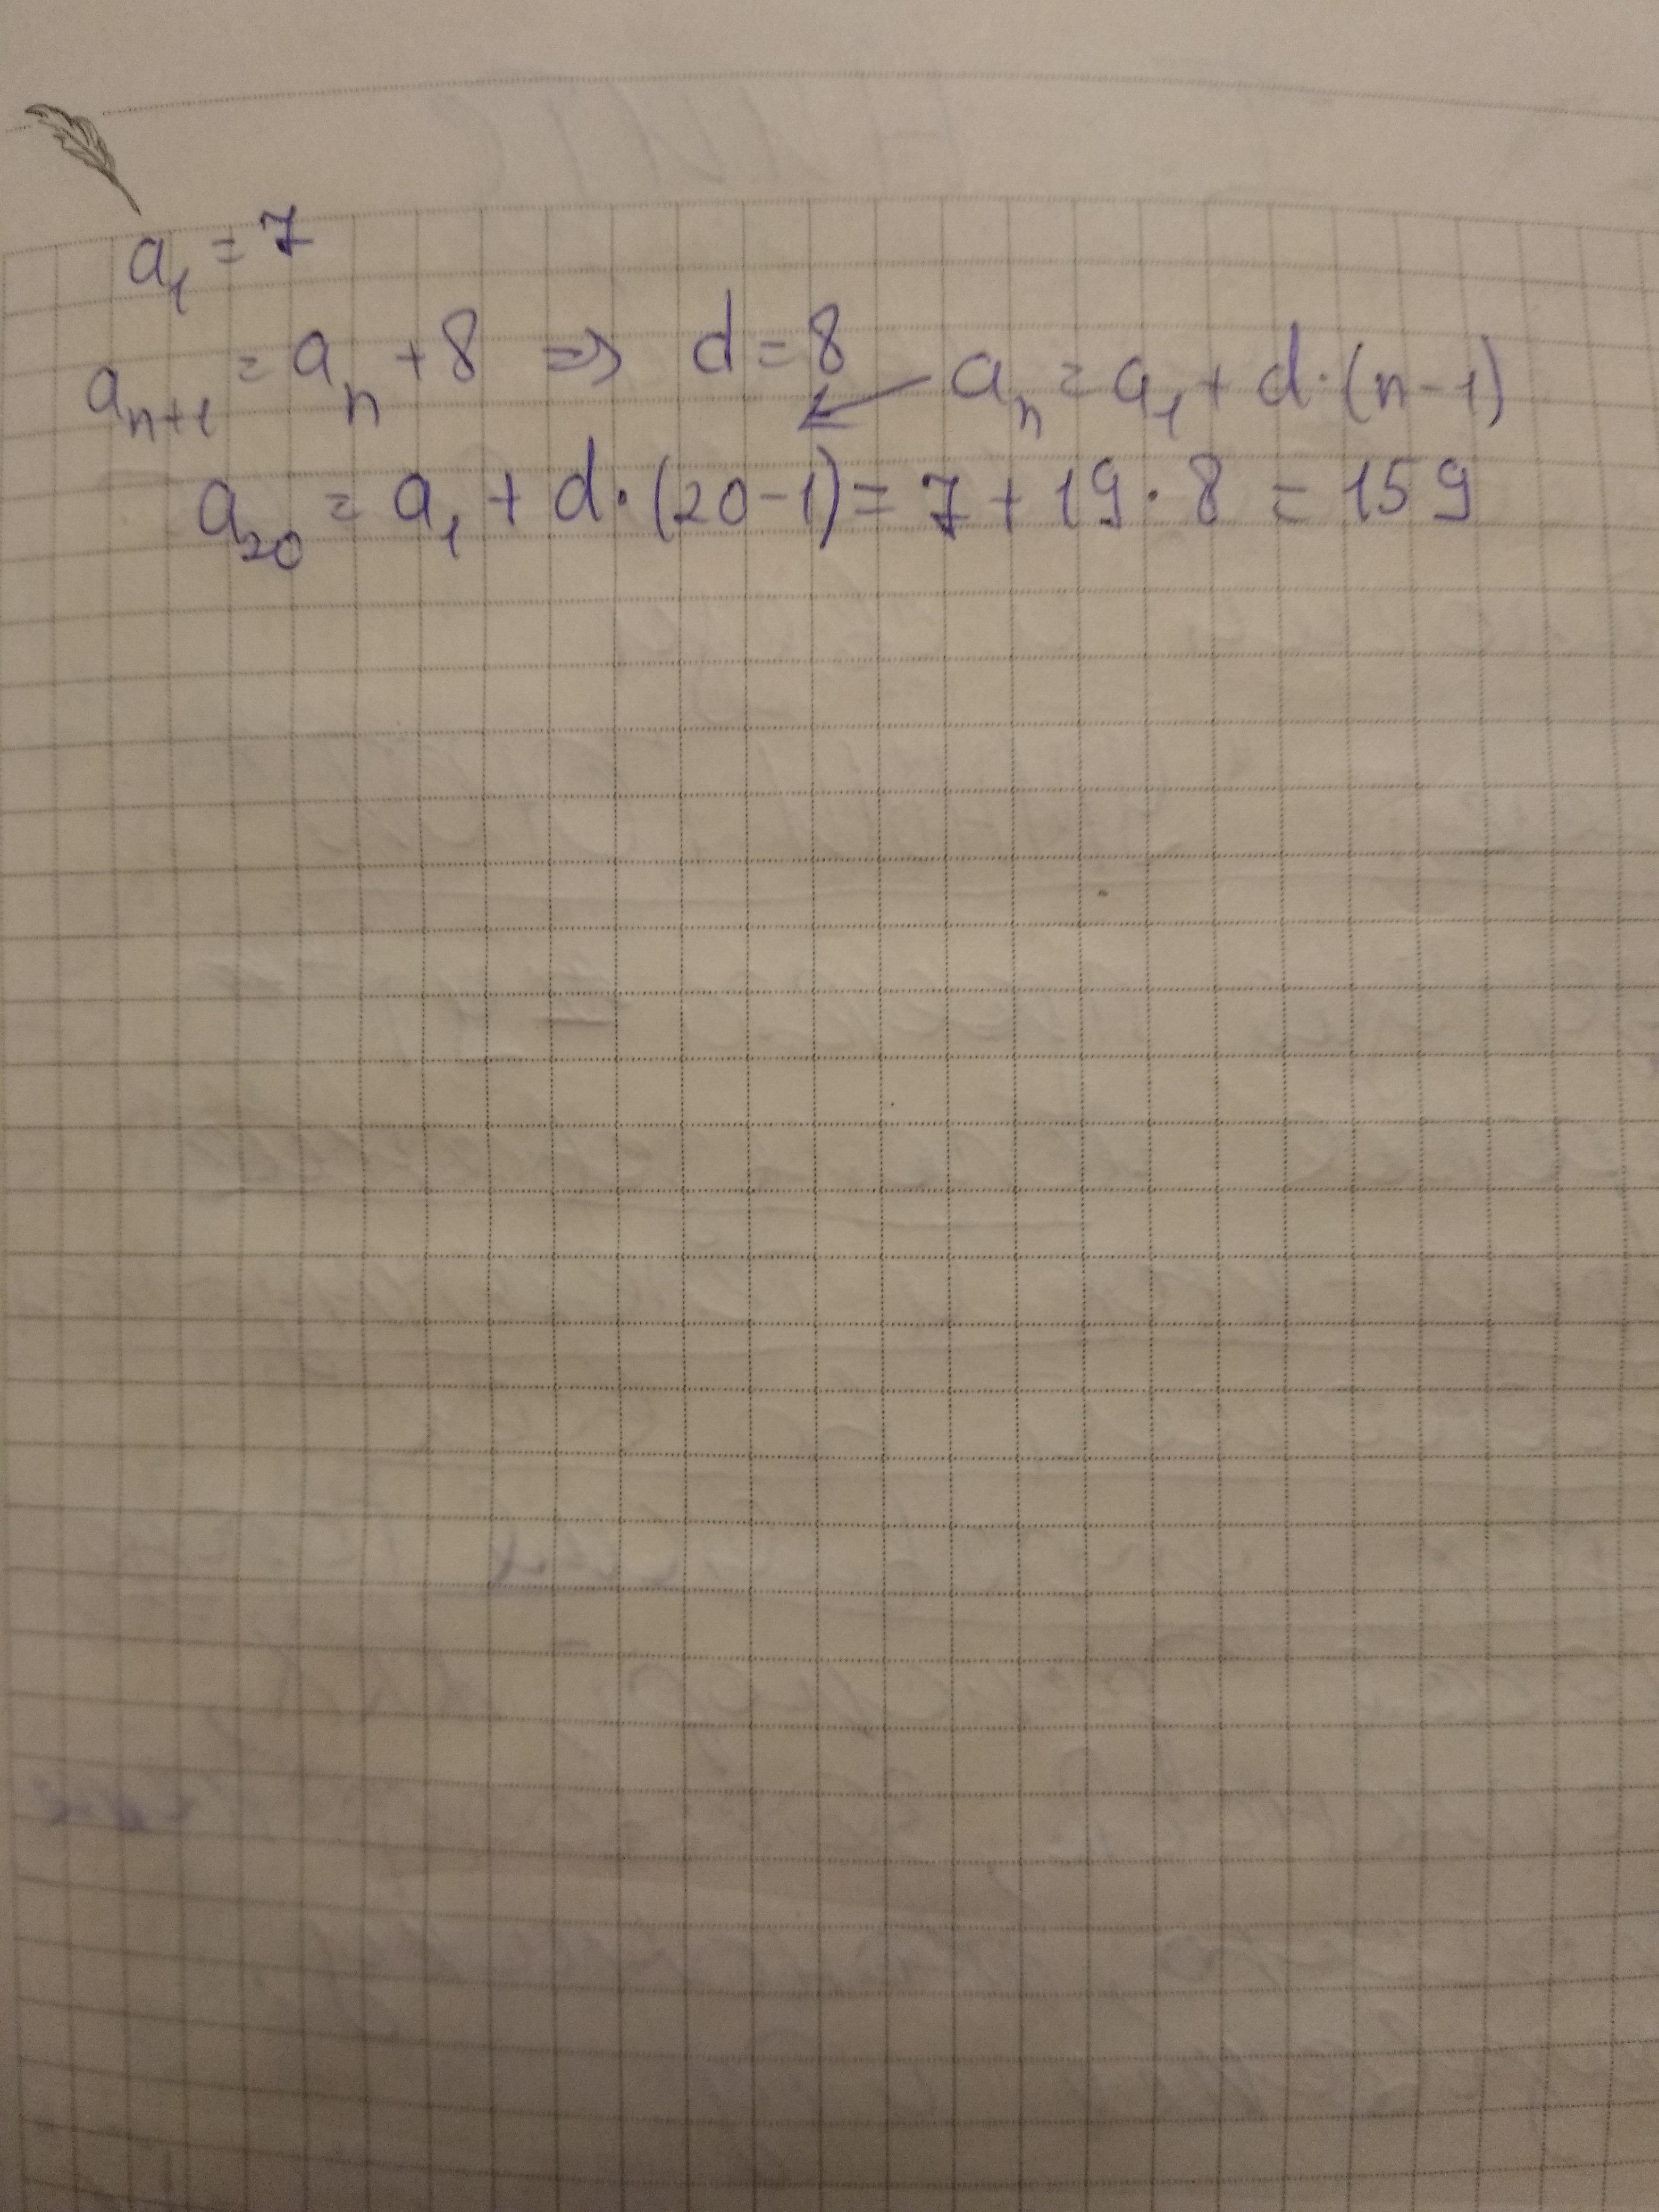 a₁ = 7
aₙ₊₁ = aₙ + 8 ⇒ d = 8 ↙ aₙ = a₁ + d · (n - 1)
a₂₀ = a₁ + d · (20 - 1) = 7 + 19 · 8 = 159